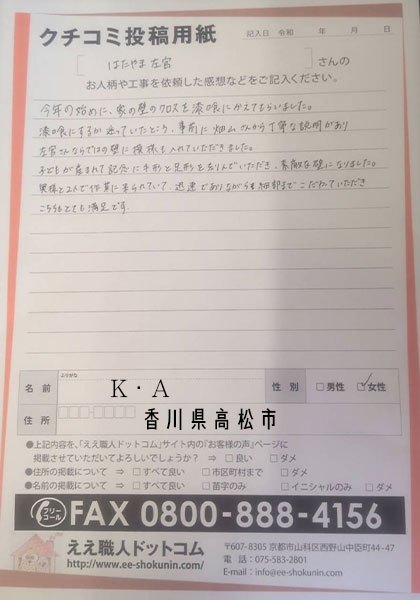 クチコミ投稿用紙
記入日 令和 年 月 日
はたやま左官 さんの
お人柄や工事を依頼した感想などをご記入ください。
今年の始めに、家の壁のクロスを漆喰にかえてもらいました。
漆喰にするか迷っていたところ、事前に畑山さんから丁寧な説明があり
左官さんならではの壁に模様も入れていただきました。
子どもが産まれて記念に手形と足形を左りんでいただき、素敵な壁になりました。
奥様と2人で作業に来られていて、迅速でありながらも細部までこだわっていただき
こちらもとても満足です。
ふりがな
名前 K・A 性別 □男性 □女性
住所 香川県高松市
●上記内容を、「ええ職人ドットコム」サイト内の『お客様の声』ページに
掲載させていただいてよろしいでしょうか? ⇒ □良い □ダメ
●住所の掲載について ⇒ □すべて良い □市区町村まで □ダメ
●名前の掲載について ⇒ □すべて良い □苗字のみ □イニシャルのみ □ダメ
フリーコール FAX 0800-888-4156
ええ職人ドットコム
http://www.ee-shokunin.com/
〒607-8305 京都市山科区西野山中臣町44-47
電 話:075-583-2801
E-mail:info@ee-shokunin.com